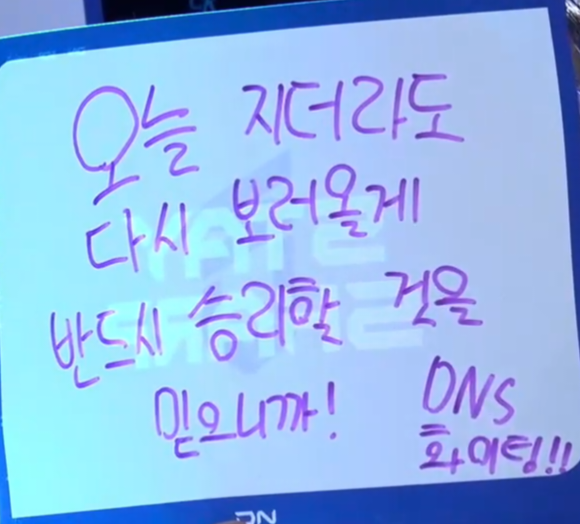 오늘 지더라도
다시 보러올게
반드시 승리할 것을
믿으니까!
DNS
화이팅!!
DN